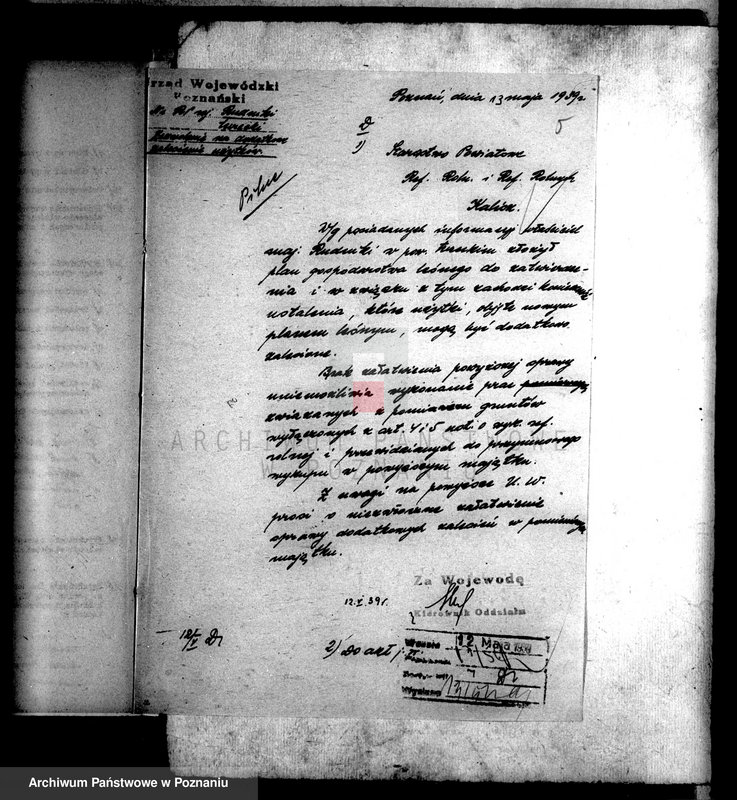 Urząd Wojewódzki
Poznański
Poznań, dnia 13 maja 1939 r.
5
Rudniki
zezwolenie na dodatkowe
zalesienie użytków.
D
1)
Starostwo Powiatowe
Ref. Roln. i Ref. Rolnych
Kalisz.
Pilne
Wg posiadanych informacyj właściciel
maj. Rudniki w pow. złożył
plan gospodarstwa leśnego do zatwierdze-
nia i w związku z tym zachodzi konieczność
ustalenia, które użytki, objęte nowym
planem leśnym, mogą być dodatkowo
zalesione.
Brak załatwienia powyższej sprawy
uniemożliwia wykonanie prac
związanych z pomiarem gruntów
wyłączonych z art. 4 i 5 ust. o wyk. ref.
rolnej i przewidzianych do przymusowego
wykupu w powyższym majątku.
Z uwagi na powyższe U. W.
prosi o niezwłoczne załatwienie
sprawy dodatkowych zalesień w pomienionym
majątku.
Za Wojewodę
12.V.39r.
Kierownik Oddziału
2) Do akt
12 Maja 1939
ARCHIWUM PAŃSTWOWE
W POZNANIU
Archiwum Państwowe w Poznaniu